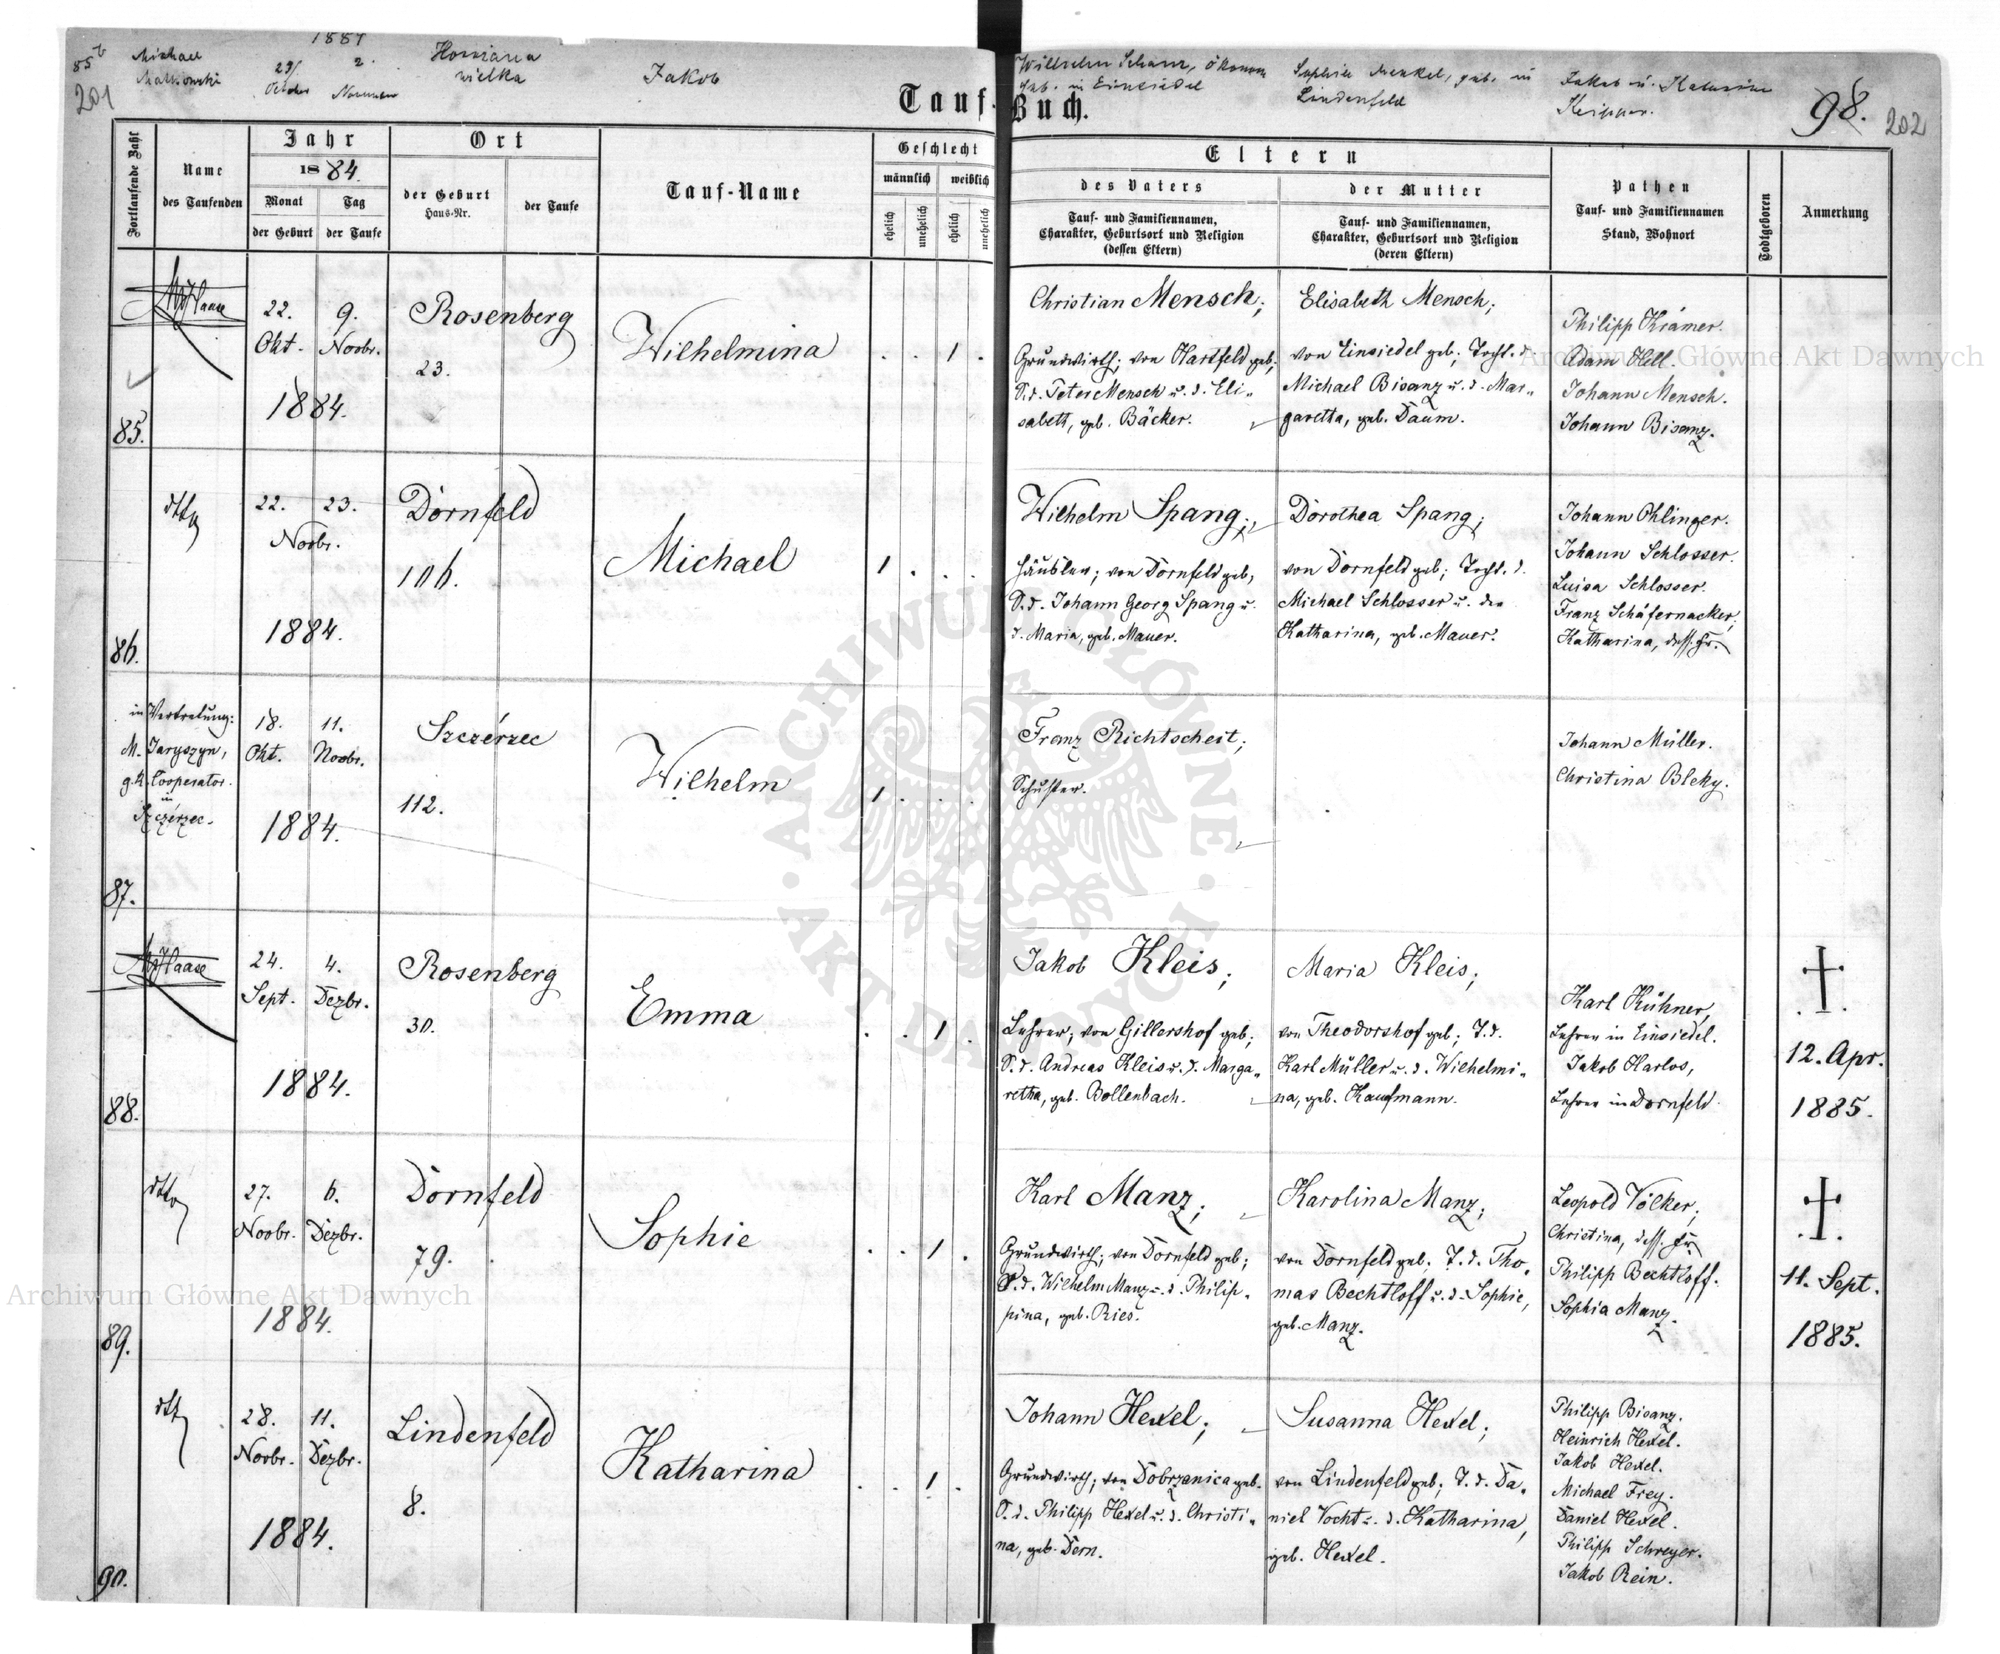 85b
Michael
Malkowski
1884
29/ 2.
October November
Honiana
wielka
Jakob
Wilhelm Schanz, Ökonom
geb. in Einsiedel
Sophie Menkel, geb. in
Lindenfeld
Jakob u. Katarina
Keipper.
201
Tauf-Buch.
98.
202
Fortlaufende Zahl
Name
des Taufenden
Jahr
1884.
Monat
der Geburt
Tag
der Taufe
Ort
der Geburt
Haus-Nr.
der Taufe
Tauf-Name
Geschlecht
männlich
weiblich
ehelich
unehelich
ehelich
unehelich
Eltern
des Vaters
Tauf- und Familiennamen,
Charakter, Geburtsort und Religion
(dessen Eltern)
der Mutter
Tauf- und Familiennamen,
Charakter, Geburtsort und Religion
(deren Eltern)
Pathen
Tauf- und Familiennamen
Stand, Wohnort
Todtgeboren
Anmerkung
85.
Haase
22. 9.
Okt. Novbr.
1884.
Rosenberg
23.
Wilhelmina
. . 1 .
Christian Mensch;
Grundwirth; von Hartfeld geb;
S. d. Peter Mensch u. d. Eli-
sabeth, geb. Bäcker.
Elisabeth Mensch;
von Einsiedel geb; Tocht. d.
Michael Bisanz u. d. Mar-
garetha, geb. Daum.
Philipp Krämer.
Adam Hell.
Johann Mensch.
Johann Bisanz.
86.
dtto
22. 23.
Novbr.
1884.
Dornfeld
106.
Michael
1 . . .
Wilhelm Spang;
Häusler; von Dornfeld geb,
S. d. Johann Georg Spang u.
d. Maria, geb. Mauer.
Dorothea Spang;
von Dornfeld geb; Tocht. d.
Michael Schlosser u. der
Katharina, geb. Mauer.
Johann Ohlinger.
Johann Schlosser.
Luisa Schlosser.
Franz Schäfernacker,
Katharina, dess. Fr.
87.
in Vertretung:
M. Jaryszyn,
g. k. Cooperator.
in
Szczérzec.
18. 11.
Okt. Novbr.
1884.
Szczérzec
112.
Wilhelm
1 . . .
Franz Richtscheit;
Schuster.
Johann Müller.
Christina Bleky.
88.
Haase
24. 4.
Sept. Dezbr.
1884.
Rosenberg
30.
Emma
. . 1 .
Jakob Kleis;
Lehrer; von Gillershof geb;
S. d. Andreas Kleis u. d. Marga-
retha, geb. Bollenbach.
Maria Kleis;
von Theodorshof geb; T. d.
Karl Müller u. d. Wilhelmi-
na, geb. Kaufmann.
Karl Kühner,
Lehrer in Einsiedel.
Jakob Harlos,
Lehrer in Dornfeld.
12. Apr.
1885.
89.
dtto
27. 6.
Novbr. Dezbr.
1884.
Dornfeld
79.
Sophie
. . 1 .
Karl Manz;
Grundwirth; von Dornfeld geb;
S. d. Wilhelm Manz u. d. Philip-
pina, geb. Ries.
Karolina Manz;
von Dornfeld geb; T. d. Tho-
mas Bechtloff u. d. Sophie,
geb. Manz.
Leopold Völker;
Christina, dess. Fr.
Philipp Bechtloff.
Sophia Manz.
11. Sept.
1885.
90.
dtto
28. 11.
Novbr. Dezbr.
1884.
Lindenfeld
8.
Katharina
. . 1 .
Johann Hexel;
Grundwirth; von Dobrzanica geb.
S. d. Philipp Hexel u. d. Christi-
na, geb. Dern.
Susanna Hexel;
von Lindenfeld geb; T. d. Da-
niel Vocht u. d. Katharina,
geb. Hexel.
Philipp Bisanz.
Heinrich Hexel.
Jakob Hexel.
Michael Frey.
Daniel Hexel.
Philipp Schreyer.
Jakob Rein.
Archiwum Główne Akt Dawnych
Archiwum Główne Akt Dawnych
ARCHIWUM GŁÓWNE · AKT DAWNYCH ·